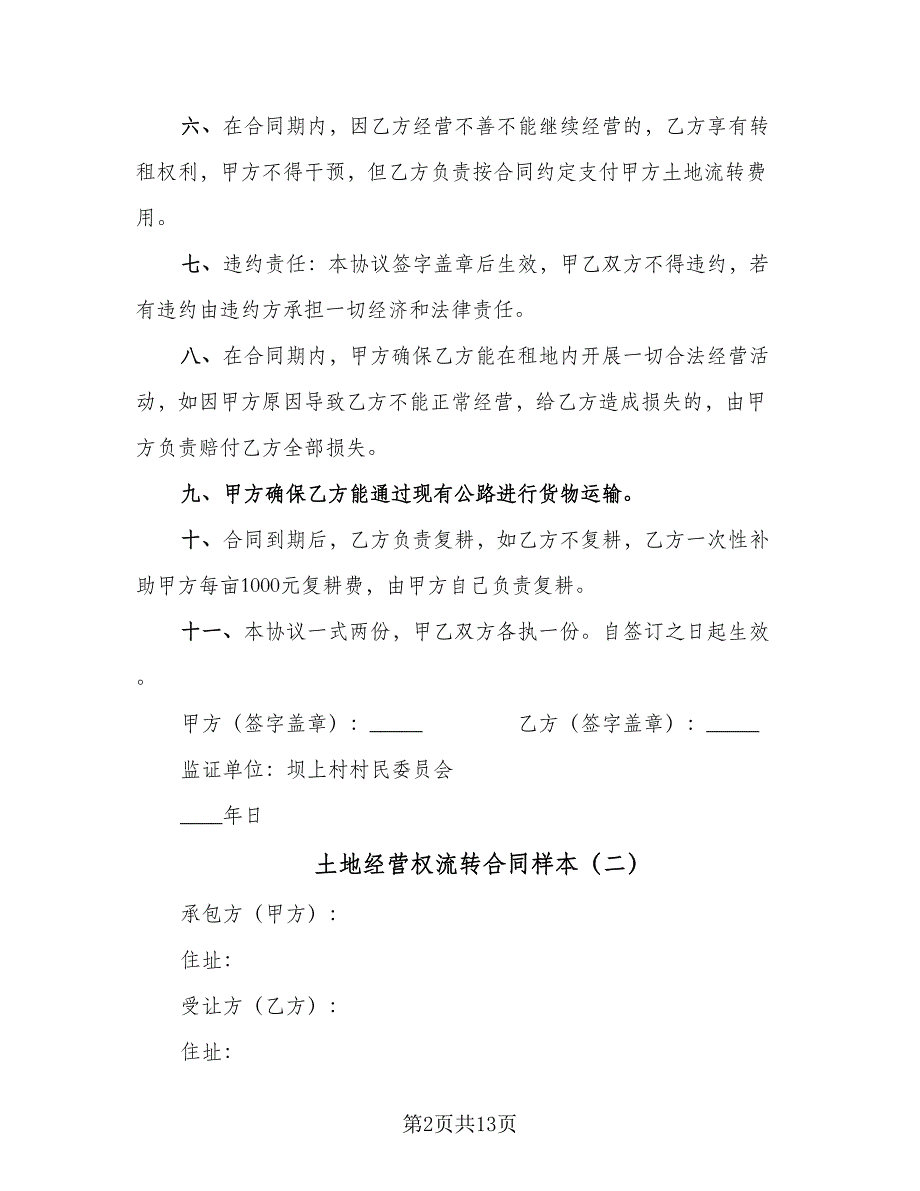 六、在合同期内，因乙方经营不善不能继续经营的，乙方享有转
租权利，甲方不得干预，但乙方负责按合同约定支付甲方土地流转费
用。
七、违约责任：本协议签字盖章后生效，甲乙双方不得违约，若
有违约由违约方承担一切经济和法律责任。
八、在合同期内，甲方确保乙方能在租地内开展一切合法经营活
动，如因甲方原因导致乙方不能正常经营，给乙方造成损失的，由甲
方负责赔付乙方全部损失。
九、甲方确保乙方能通过现有公路进行货物运输。
十、合同到期后，乙方负责复耕，如乙方不复耕，乙方一次性补
助甲方每亩1000元复耕费，由甲方自己负责复耕。
十一、本协议一式两份，甲乙双方各执一份。自签订之日起生效
。
甲方（签字盖章）：_____ 乙方（签字盖章）：_____
监证单位：坝上村村民委员会
____年日
土地经营权流转合同样本（二）
承包方（甲方）：
住址：
受让方（乙方）：
住址：
第2页共13页